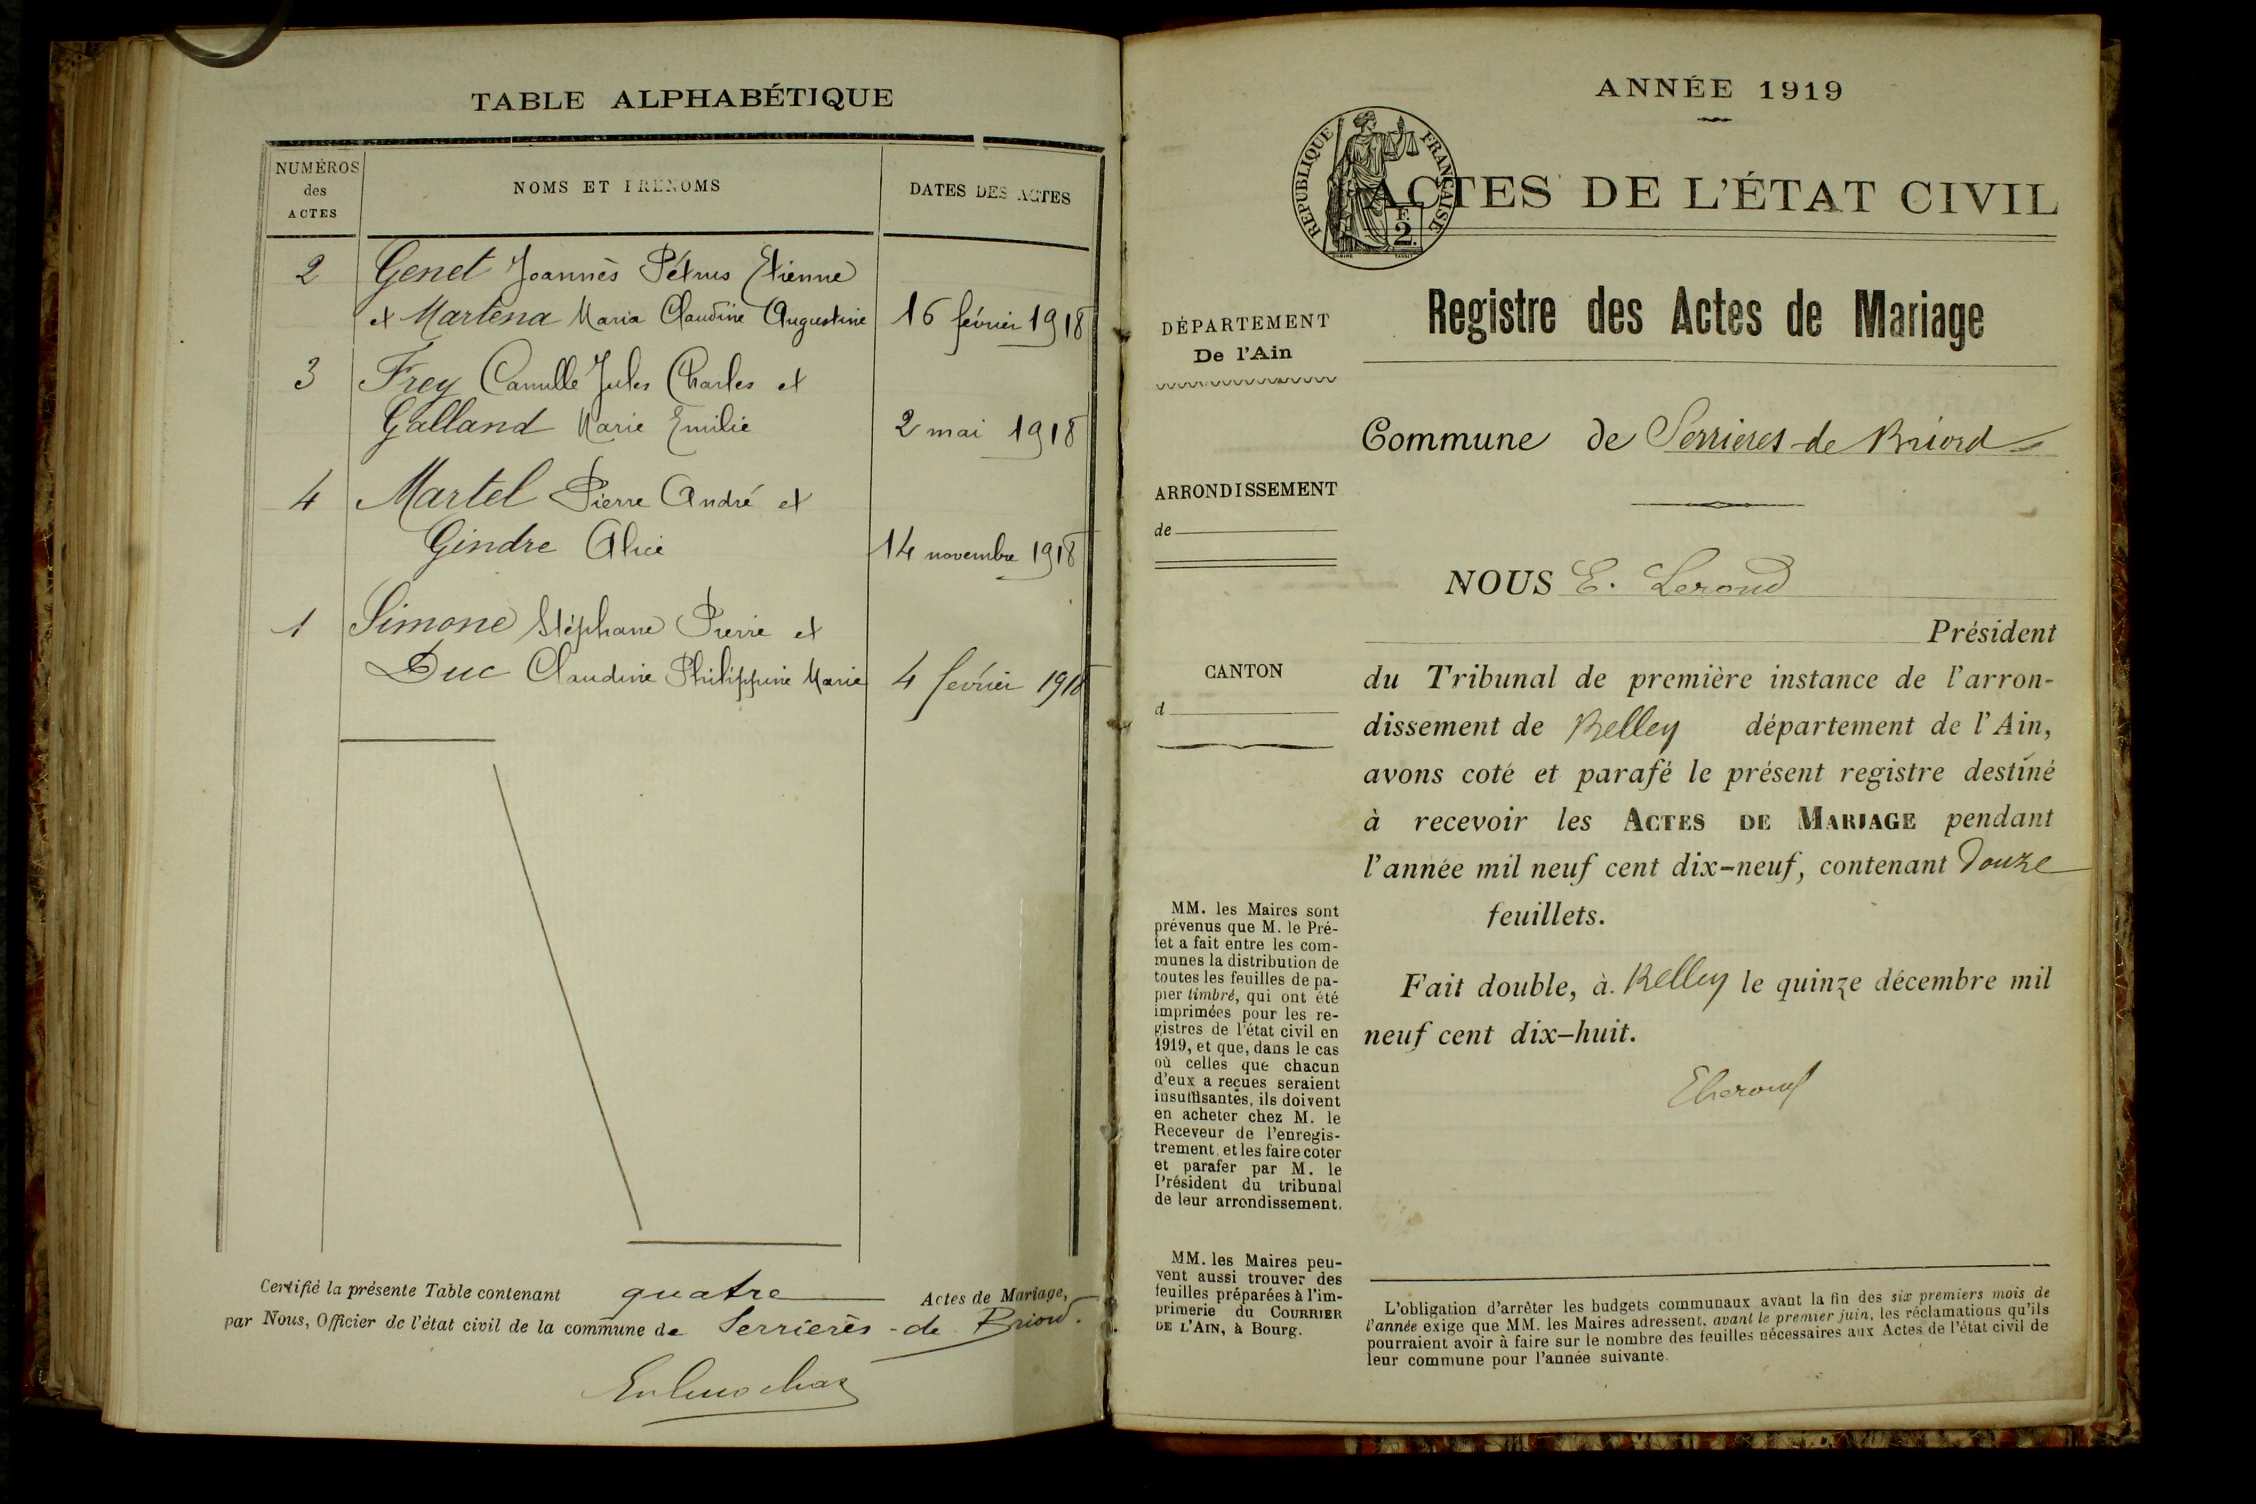 TABLE ALPHABÉTIQUE
NUMÉROS
des
ACTES
NOMS ET PRÉNOMS
DATES DES ACTES
2 Genet Joannès Pétrus Etienne
et Martena Maria Claudine Augustine 16 février 1918
3 Frey Camille Jules Charles et
Galland Marie Emilie 2 mai 1918
4 Martel Pierre André et
Gindre Alice 14 novembre 1918
1 Simone Stéphane Pierre et
Duc Claudine Philippine Marie 4 février 1918
Certifié la présente Table contenant quatre Actes de Mariage,
par Nous, Officier de l'état civil de la commune de Serrières-de Briord.
ANNÉE 1919
RÉPUBLIQUE FRANÇAISE
F.
2.
ACTES DE L'ÉTAT CIVIL
Registre des Actes de Mariage
DÉPARTEMENT
De l'Ain
ARRONDISSEMENT
de
CANTON
d
MM. les Maires sont
prévenus que M. le Pré-
fet a fait entre les com-
munes la distribution de
toutes les feuilles de pa-
pier timbré, qui ont été
imprimées pour les re-
gistres de l'état civil en
1919, et que, dans le cas
où celles que chacun
d'eux a reçues seraient
insuffisantes, ils doivent
en acheter chez M. le
Receveur de l'enregis-
trement, et les faire coter
et parafer par M. le
Président du tribunal
de leur arrondissement.
MM. les Maires peu-
vent aussi trouver des
feuilles préparées à l'im-
primerie du COURRIER
DE L'AIN, à Bourg.
Commune de Serrieres-de Briord
NOUS E. Lerond
Président
du Tribunal de première instance de l'arron-
dissement de Belley département de l'Ain,
avons coté et parafé le présent registre destiné
à recevoir les ACTES DE MARIAGE pendant
l'année mil neuf cent dix-neuf, contenant Douze
feuillets.
Fait double, à Belley le quinze décembre mil
neuf cent dix-huit.
ELerond
L'obligation d'arrêter les budgets communaux avant la fin des six premiers mois de
l'année exige que MM. les Maires adressent, avant le premier juin, les réclamations qu'ils
pourraient avoir à faire sur le nombre des feuilles nécessaires aux Actes de l'état civil de
leur commune pour l'année suivante.